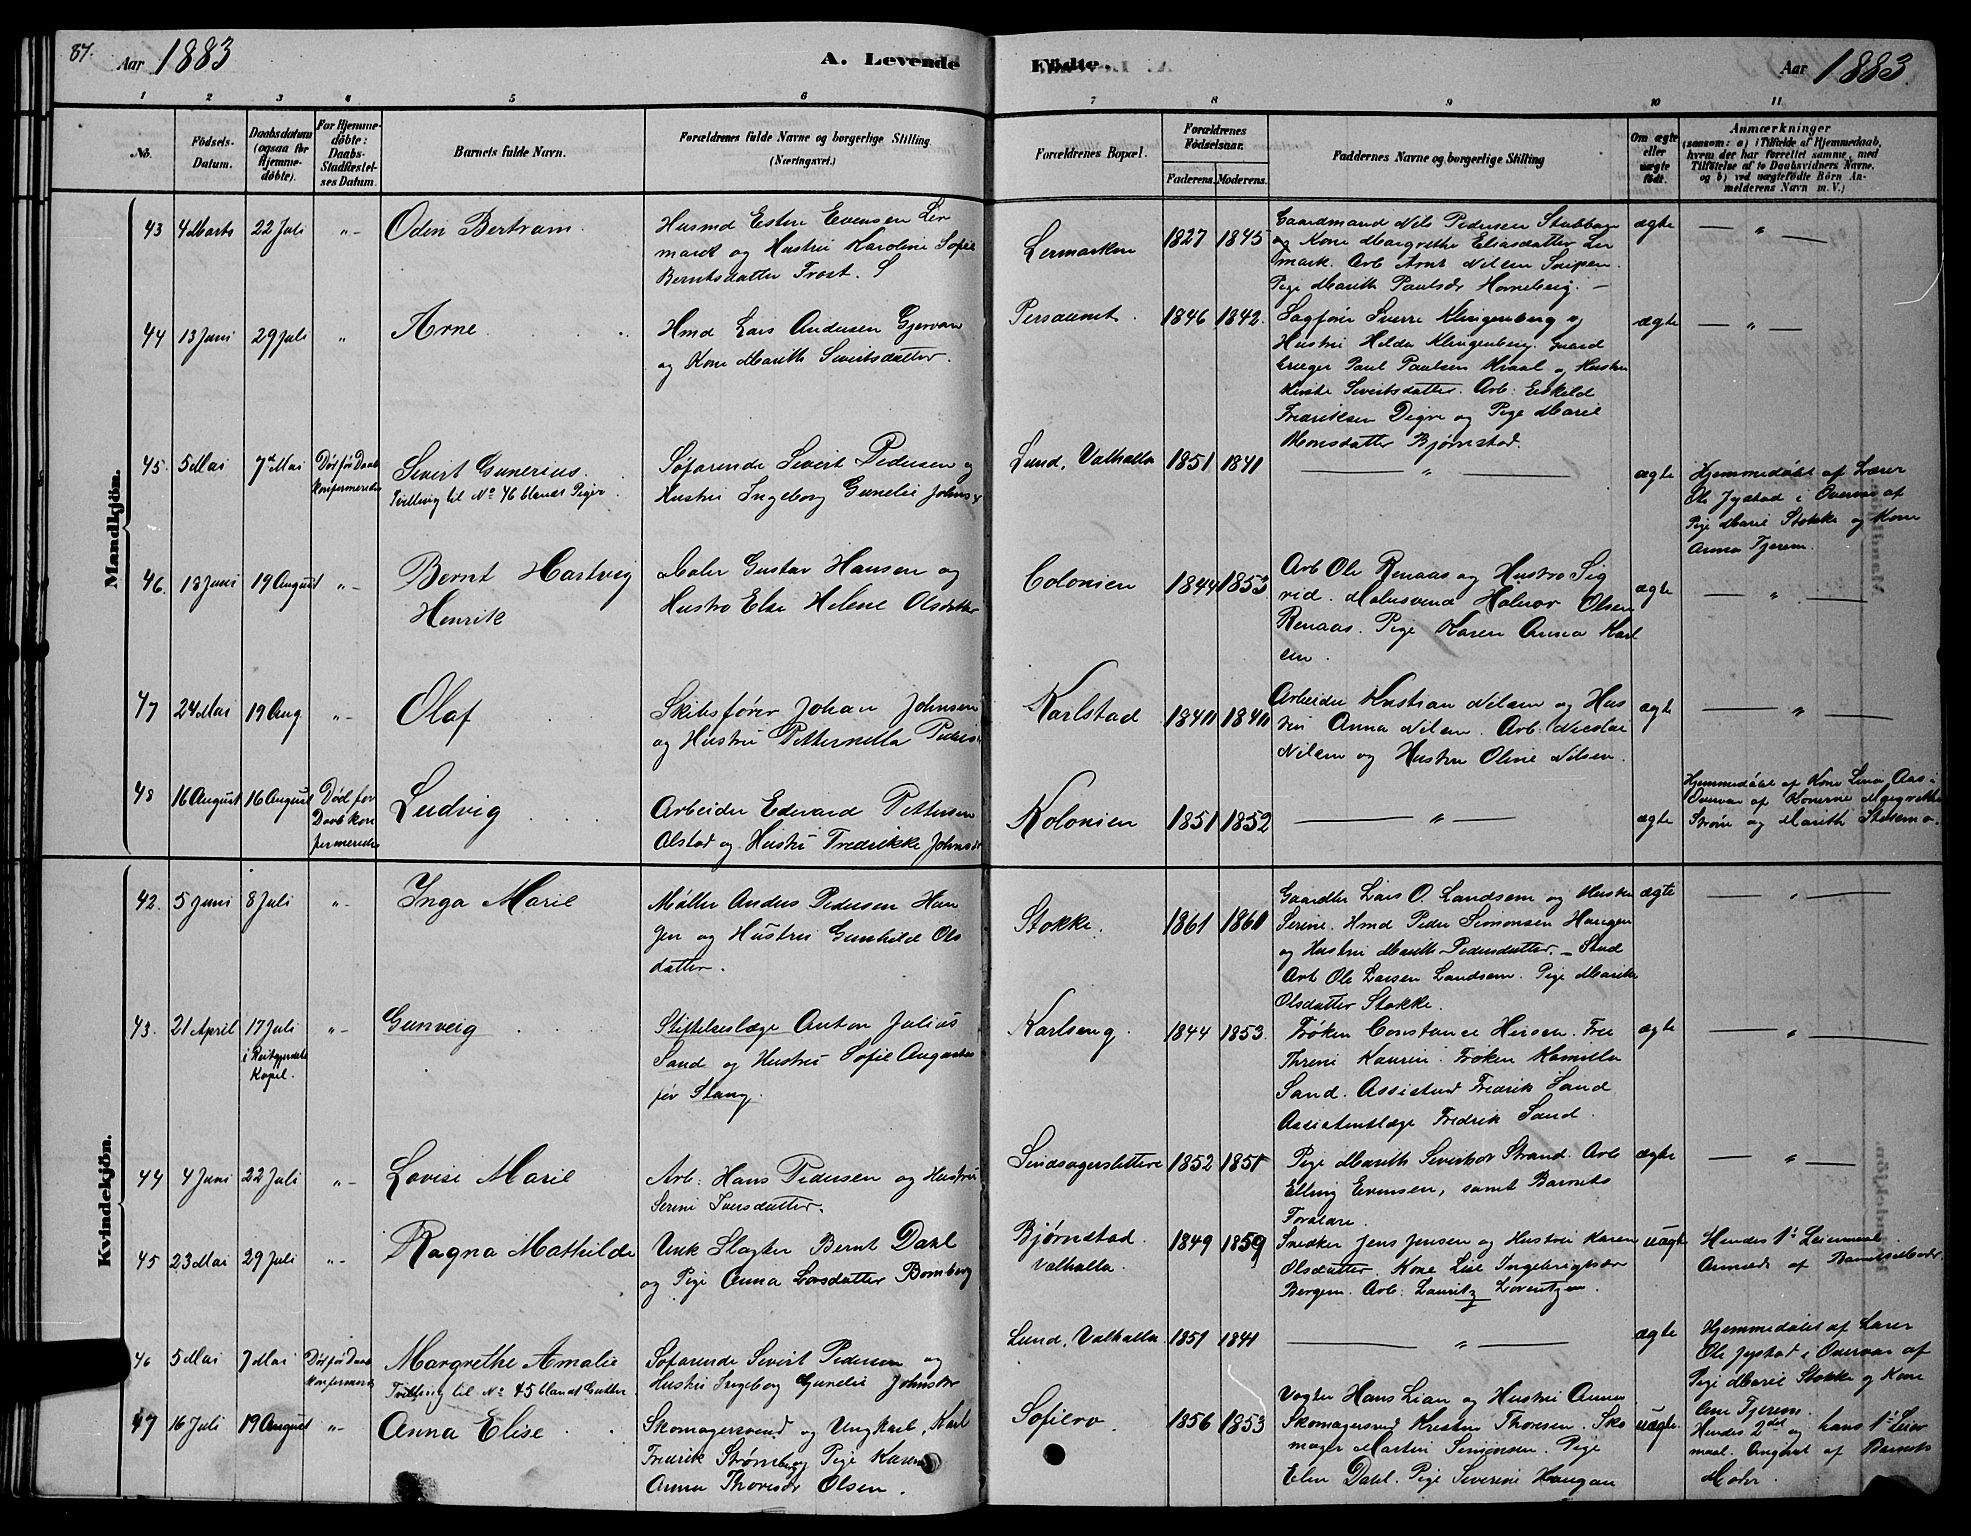 87.
Aar 1883
A. Levende
Födte.
Aar 1883.
1 2 3 4 5 6 7 8 9 10 11
No.
Födsels-
Datum.
Daabsdatum
(ogsaa for
Hjemme-
döbte).
For Hjemme-
döbte:
Daabs-
Stadfæstel-
ses Datum.
Barnets fulde Navn.
Forældrenes fulde Navne og borgerlige Stilling
(Næringsvei.)
Forældrenes Bopæl.
Forældrenes
Födselsaar.
Faderens. Moderens.
Faddernes Navne og borgerlige Stilling
Om ægte
eller
uægte
født.
Anmærkninger
(saasom: a) i Tilfælde af Hjemmedaab,
hvem der har forrettet samme, med
Tilføielse af to Daabsvidners Navne.
og b) ved uægtefödte Börn An-
melderens Navn m. V.)
Mandkjön.
43 4 Marts 22 Juli " Oden Bertram
Husmd Esten Evensen Ler
mark og Hustru Karoline Sofie
Berntsdatter Trost.
Lermarken 1827 1845
Gaardmand Nils Pedersen Stubban
og Kone Margrethe Eliasdatter Ler
mark. Arb Arnt Nilsen Snipen.
Pige Marith Paulsdr Horneberg.
ægte "
44 13 Juni 29 Juli " Arne
Hmd Lars Andersen Gjervan
og Kone Marith Sivertsdatter.
Persaunet. 1846 1842.
Sagfører Sverre Klingenberg og
Hustru Hilda Klingenberg. Gaard
bruger Paul Paulsen Kraal og Hustru
Kirste Sivertsdatter. Arb: Eskild
Fredriksen Digre og Pige Marie
Monsdatter Bjørnstad.
ægte "
45. 5 Mai 7de Mai Død før Daab
Konfermeredes
Sivert Gunerius.
Tvilling til No 46 blandt Piger.
Søfarende Sivert Pedersen og
Hustru Ingeborg Gunelie Johnsdr
Lund, Valhalla 1851 1841 " ægte
Hjemmedøbt af Lærer
Ole Jystad i Overvær af
Pige Marie Stokke og Kone
Anna Tjerem.
46. 13 Juni 19 August " Bernt Hartvig
Henrik
Maler Gustav Hansen og
Hustro Else Helene Olsdatter
Colonien 1844 1853
Arb Ole Renaas og Hustro Sig
rid. Molersvend Halvor Olsen
Renaas. Pige Karen Anna Karl
sen.
ægte "
47 24 Mai 19 Aug " Olaf
Skibsfører Johan Johnsen
og Hustru Petternella Peders
Karlstad 1840 1840
Arbeider Kristian Nilsen og Hus
tru Anna Nilsen. Arb. Nicolai
Nilsen og Hustru Oline Nilsen.
ægte "
48 16 August 16 August Død før
Daab kon
fermeredes
Ludvig
Arbeider Edevard Pettersen
Alstad og Hustru Fredrikke Johnsdr
Kolonien 1851 1852 " ægte
Hjemmedøbt af Kone Lina Aas i
Overvær af Konerne Margrethe
Strøm og Marith Stokmo.
Kvindekjön.
42. 5 Juni 8 Juli " Inga Marie
Møller Anders Pedersen Hau
gen og Hustru Gunhild Ols
datter.
Stokke. 1861 1860
Gaardbr Lars O. Landsem og Hustru
Serine. Hmd Peder Simonsen Haugen
og Hustru Marith Pedersdatter.
Arb Ole Larsen Landsem. Pige Marith
Olsdatter Stokke.
ægte "
43. 21 April 17 Juli
i Reitgjerdets
Kapel.
" Gunveig
Stiftelseslæge Anton Julius
Sand og Hustru Sofie Augusta
før Stang.
Karlseng. 1844 1853.
Frøken Constance Hirsch. Frue
Thrine Kaurin. Frøken Kamilla
Sand. Assistend Fredrik Sand
Assistentlæge Fredrik Sand.
ægte "
44 4 Juni 22 Juli " Lovise Marie
Arb. Hans Pedersen og Hustru
Serine Iversdatter.
Sindsagerslettere 1852 1851
Pige Marith Sivertsdr Strand. Arb
Elling Evensen, samt Barnets
Forældre.
ægte "
45 23 Mai 29 Juli " Ragna Mathilde
Unk Slagter Bernt Dahl
og Pige Anna Larsdatter Bomberg
Bjørnstad
Valhalla. 1849 1859
Snedker Jens Jensen og Hustru Karen
Olsdatter. Kone Lise Ingebrigtsdr
Bergem. Arb: Lauritz Lorentzen.
uægte
Hendes 1ste Leiermaal.
Anmeldt af Barnets Moder
46 5 Mai 7 Mai Død før Daab
Konfermeredes
Margrethe Amalie
Tvilling til No 45 blandt Gutter.
Søfarende Sivert Pedersen og
Hustru Ingeborg Gunelie Johnsdr
Lund, Valhalla 1851 1841 " ægte
Hjemmedøbt af Lærer
Ole Jystad i Overvær af
Pige Marie Stokke og Kone
Ane Tjerem.
47 16 Juli 19 August " Anna Elise
Skomagersvend og Ungkarl, Karl
Fredrik Strømberg Pige Karen
Anna Thoresdr Olsen.
Sofilero 1856 1853
Vogter Hans Lian og Hustru Anna
Skomagersvd Kristen Thoresen. Sko
mager Martin Simonsen. Pige
Elen Dahl. Pige Severine Haugan
uægte
Hendes 2det og hans 1ste Leier
maal. Angivet af Barnets
Moder.